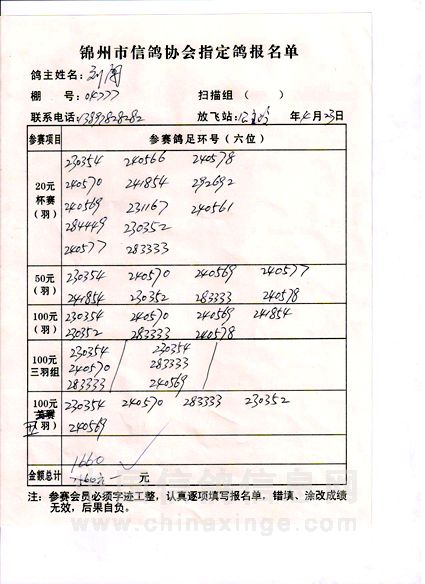 锦州市信鸽协会指定鸽报名单
鸽主姓名: 刘阁
棚 号: 04777 扫描组 ( )
联系电话: 13898282182 放飞站: 年4月23日
参赛项目 参赛鸽足环号(六位)
20元
杯赛
(羽)
230354 240566 240578
240570 241854 292692
240569 231167 240561
284449 230352
240577 283333
50元
(羽)
230354 240570 240569 240577
241854 230352 283333 240578
100元
(羽)
230354 240570 240569 241854
230352 283333 240578
100元
三羽组
230354 230354
240570 283333
283333 240569
100元
(羽)
230354 240570 283333 230352
240569
1660
金额总计 元
注: 参赛会员必须字迹工整,认真逐项填写报名单,错填、涂改成绩
无效,后果自负。
中国信鸽信息网
www.chinaxinge.com